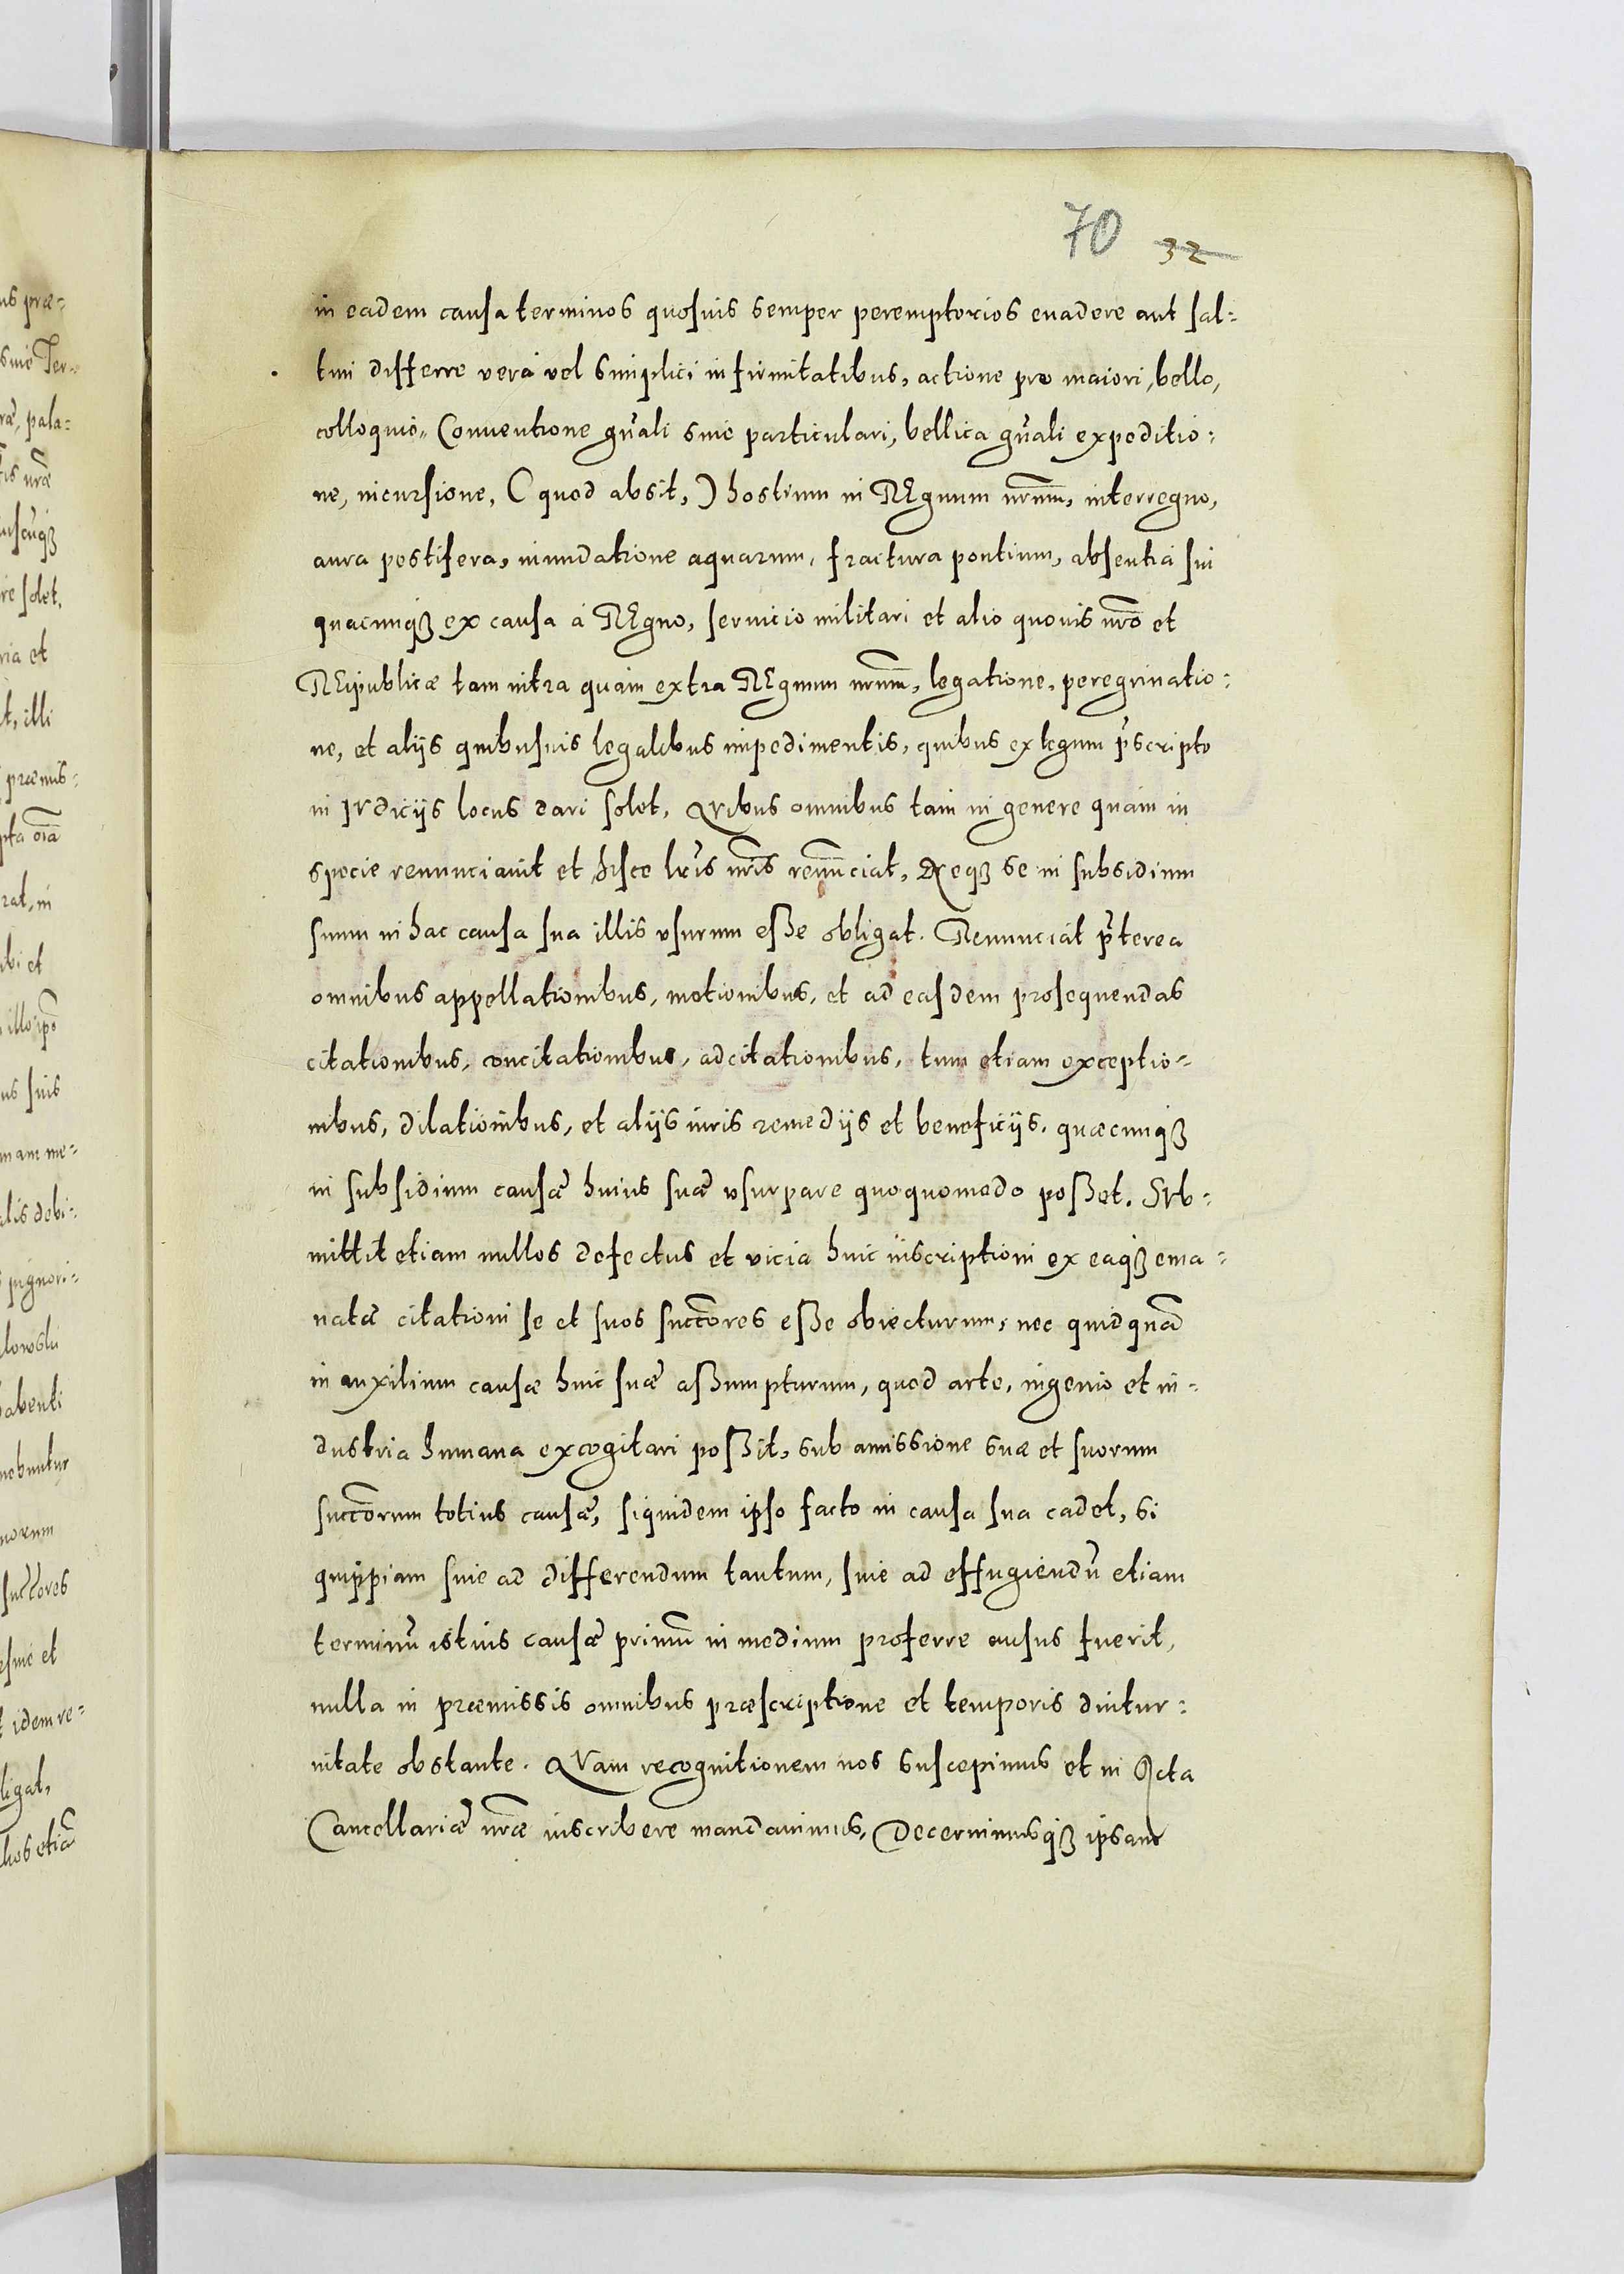 70 32
in eadem causa terminos quosuis semper peremptorios euadere aut sal=
tim differre vera vel simplici infirmitatibus, actione pro maiori, bello,
colloquio, Conuentione gñali siue particulari, bellica gñali expeditio=
ne, incursione, (quod absit,) hostium in REgnum nrum̃, interregno,
aura pestifera, inundatione aquarum, fractura pontium, absentia sui
quacunqȝ ex causa á REgno, seruicio militari et alio quouis nrõ et
REipublicæ tam intra quam extra REgnum nrum̃, legatione, peregrinatio=
ne, et alijs quibusuis legalibus impedimentis, quibus ex legum p̃scripto
in IVdicijs locus dari solet, QVibus omnibus tam in genere quam in
specie renunciauit et hisce lr̃is nr̃is renũnciat, NEqȝ se in subsidium
suum in hac causa sua illis vsurum eße obligat. Renunciat p̃terea
omnibus appellationibus, motionibus, et ad easdem prosequendas
citationibus, concitationibus, adcitationibus, tum etiam exceptio=
nibus, dilationibus, et alijs iuris remedijs et beneficijs, quæcunqȝ
in subsidium causæ huius suæ vsurpare quoquomodo poßet. SVb=
mittit etiam nullos defectus et vicia huic inscriptioni ex eaqȝ ema=
natæ citationi se et suos succõres eße obiecturum, nec quidquã
in auxilium causæ huic suæ aßumpturum, quod arte, ingenio et in=
dustria humana excogitari poßit, sub amissione suæ et suorum
succõrum totius causæ, siquidem ipso facto in causa sua cadet, si
quippiam siue ad differendum tantum, siue ad effugiendũ etiam
terminũ istius causæ primũ in medium proferre ausus fuerit,
nulla in præmissis omnibus præscriptione et temporis diutur=
nitate obstante. QVam recognitionem nos suscepimus et in Acta
Cancellariæ nr̃æ inscribere mandauimus, Decernimusqȝ ipsam